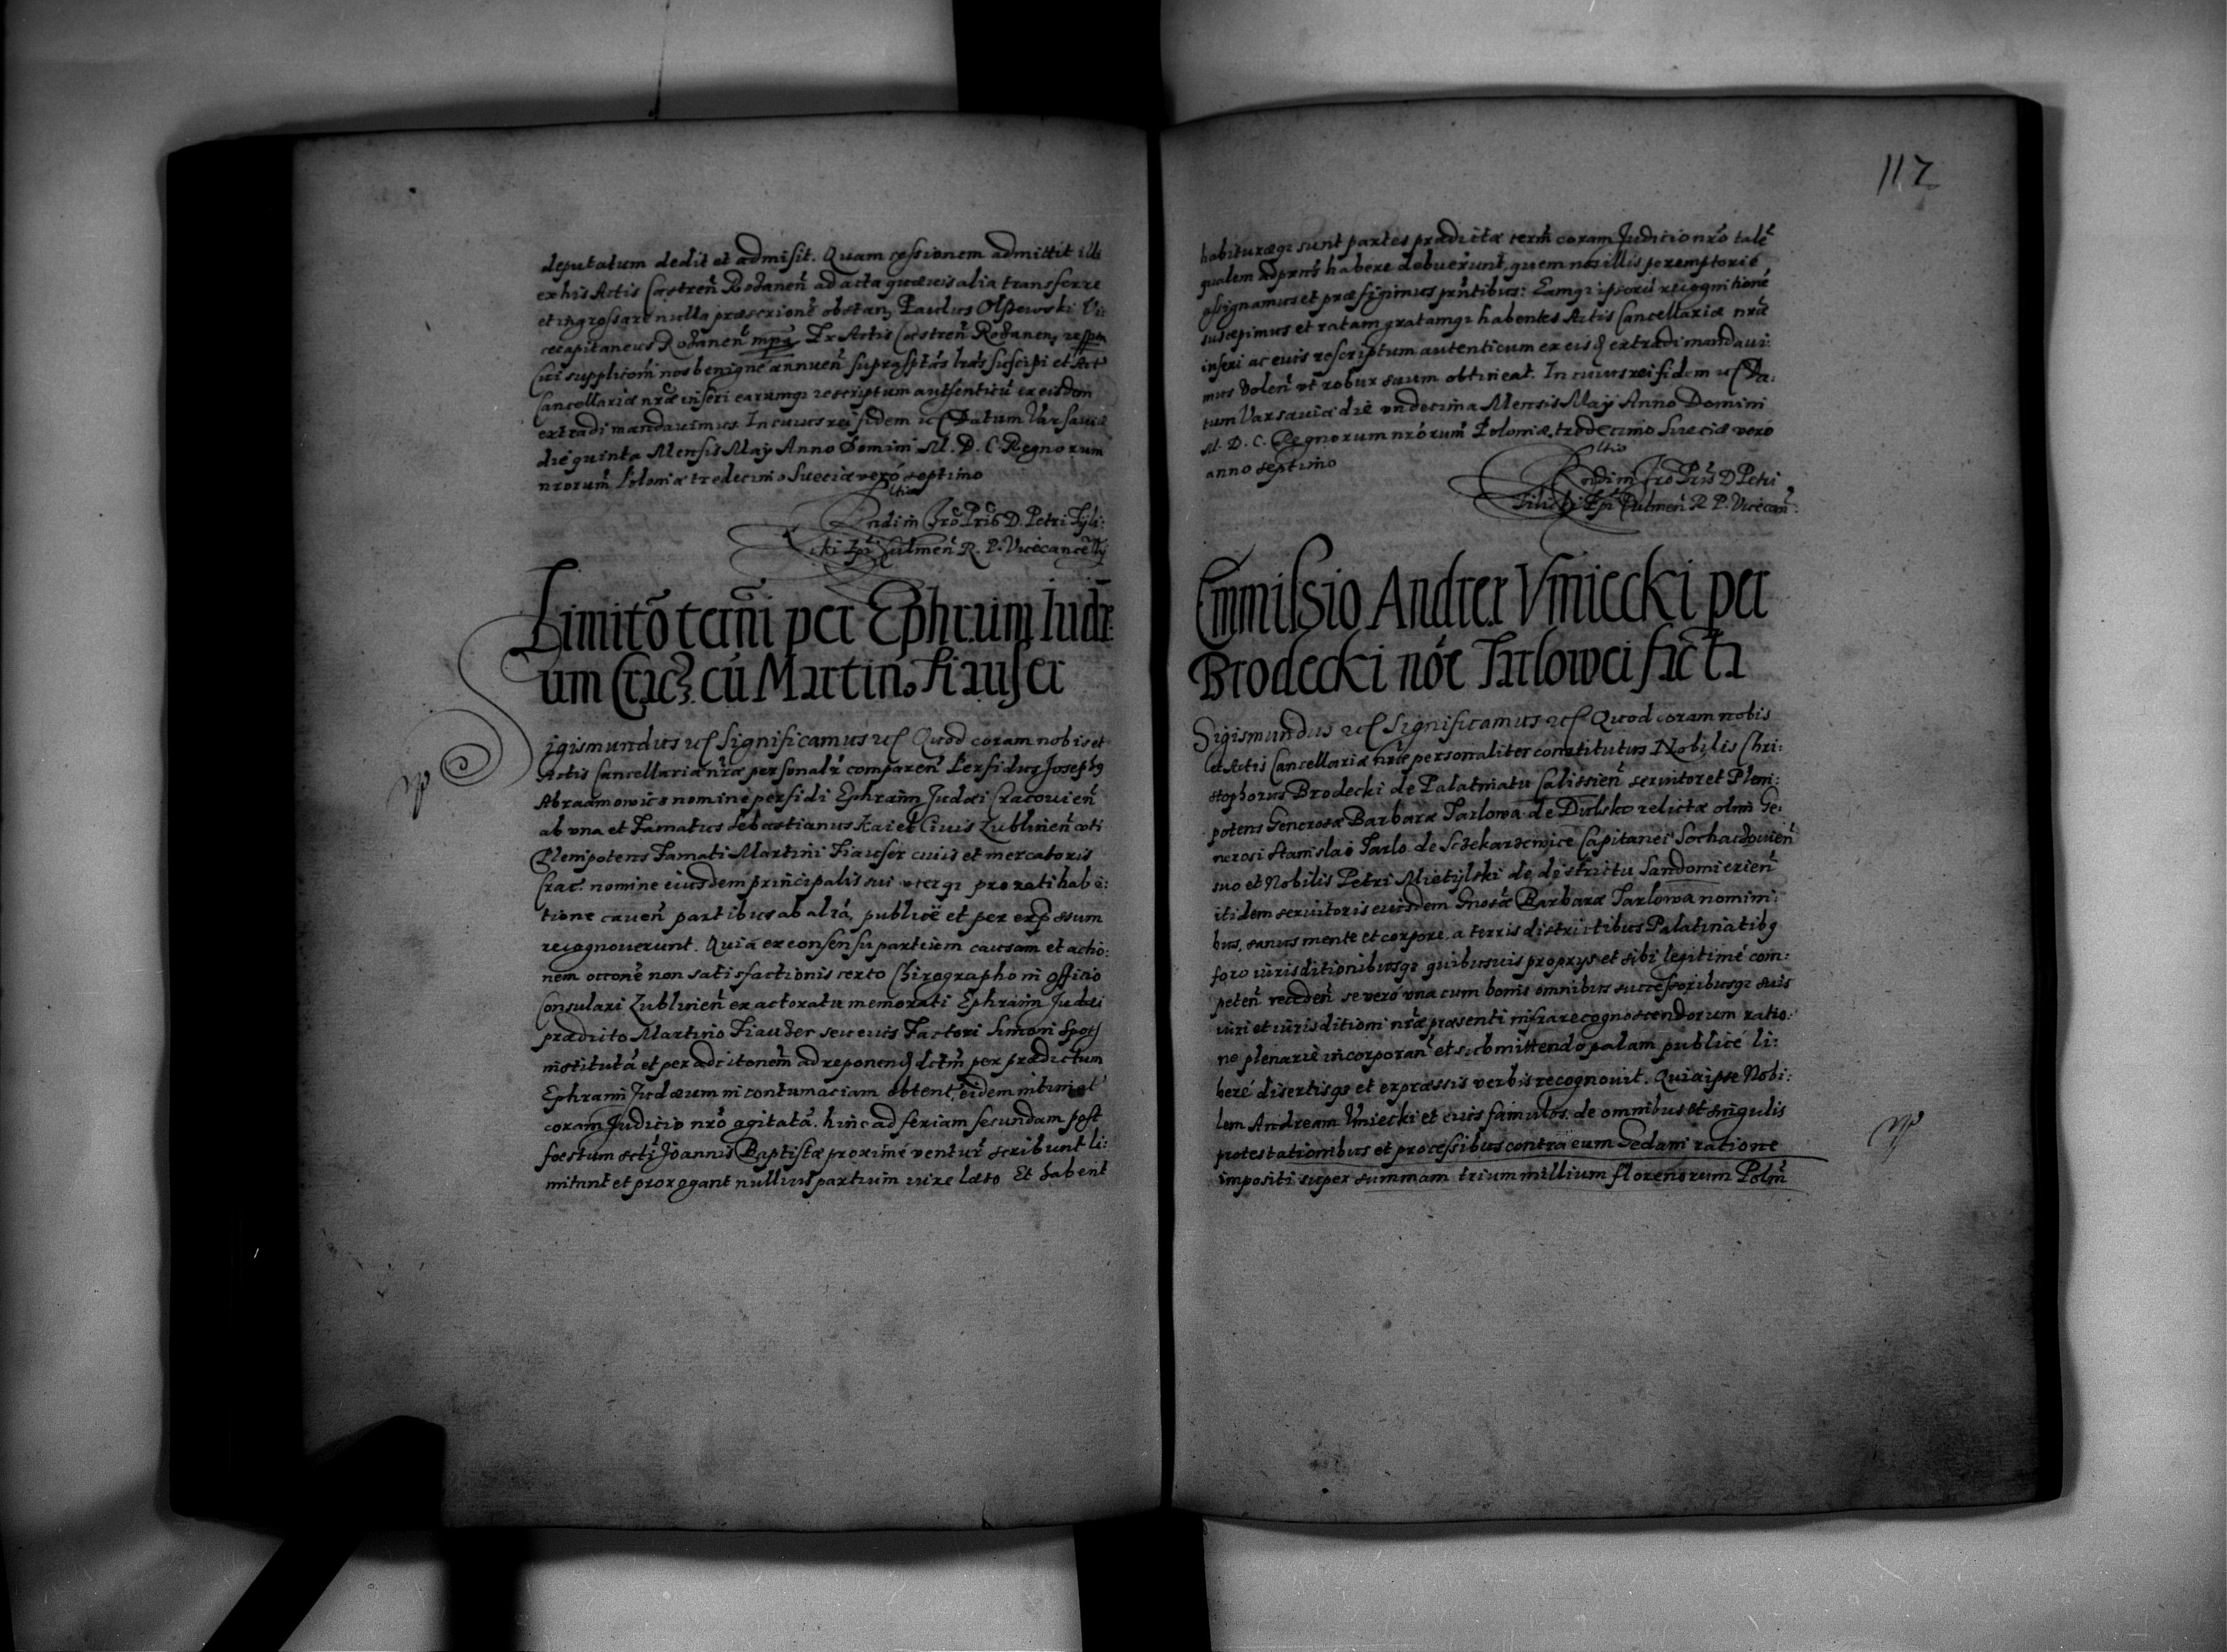 deputatum dedit et admisit. Quam cessionem admittit illi
ex his Actis Castren̄ Rohanen̄ ad acta quævis alia transferre
et ingrossare nulla præscrione obstan, Paulus Olssewski Vi
cecapitaneus Rohanen̄ mpa Ex Actis Castren̄ Rohanen,
Cui supplicōni nos benigne annuen̄ suprasptas lras suscipi et Act
Cancellariæ nræ inseri earumqz rescriptum authenticū ex eisdem
extradi mandavimus. In cuius rei fidem Datum Varsaviæ
die quinta Mensis May Anno Domini M. D. C. Regnorum
nrorum Poloniæ tredecimo Sueciæ veró septimo
D. Petri Tyli:
cki Epi Culmen̄ R. P. Vicecancellȳ
Limitō termi per Ephrum Iudæ
um Crac cū Martino Fiauser
Sigismundus Significamus Quod coram nobis et
Actis Cancellariæ nræ personalr comparen̄ Perfidus Josephg
Abraamowicz nomine perfidi Ephraim Judæi Cracovien̄
ab una et Famatus Sebastianus Civis Lublinen̄ uti
Plenipotens Famati Martini Fiauser civis et mercatoris
Crac. nomine eiusdem principalis sui uterqz pro ratihabi:
tione caven̄ partibus ab aliā, publice et per expssum
recognoverunt. Quia ex consensu partium causam et actio:
nem occone non satisfactionis certo Chirographo in officio
Consulari Lublinen̄ ex actoratu memorati Ephraim Judæi
prædicto Martino Fiauser seu eius Factori Simoni
institutā et per adcitonem ad reponend per prædictum
Ephraim Judæum in contumaciam obtent, eidem
coram Judicio nro agitatā. hinc ad feriam secundam post
festum scti Joannis Baptistæ proximé ventur̄ scribunt li:
mitant et prorogant nullius partium iure læso Et habent
117
habituræqz sunt partes prædictæ term coram Judicio nro talē
qualem ad præns habere debuerunt, quem nos illis peremptorié
assignamus et præfigimus prntibus: Eamqz ipsorū recognitionē
suscepimus et ratam gratamqz habentes Actis Cancellariæ nræ
inseri ac eius rescriptum autenticum ex eisd extradi mandavi:
mus volen̄ ut robur suum obtineat. In cuius rei fidem Da:
tum Varsaviæ die undecima Mensis May Anno Domini
M. D. C. Regnorum nrórum Poloniæ tredecimo Sueciæ veró
anno septimo
D Petri
Tilicki Epi Culmen̄ R P. Vicecan̄
Cmmissio Andreæ Vniecki per
Brodecki nóe Tarlowei facta
Sigismundus Significamus Quod coram nobis
et Actis Cancellariæ nræ personaliter constitutus Nobilis Chri:
stophorus Brodecki de Palatinatu Calissien̄ servitor et Pleni:
potens Generosæ Barbaræ Tarlowa de Dulsko relictæ olim Ge:
nerosi Stanislai Tarlo de Sczekarzewice Capitanei Sochaczovien̄
suo et Nobilis Petri Mietylski de districtu Sandomierien̄
itidem servitoris eiusdem Gnosæ Barbaræ Tarlowa nomini:
bus, sanus mente et corpore, a terris districtibus Palatinatibg
foro iurisditionibusqz quibusuis proprys et sibi legitimé com:
peten̄ receden̄ se veró una cum bonis omnibus successoribusqz suis
iuri et iurisditioni nræ præsenti infrarecognoscendorum ratio:
ne plenariè incorporan̄ et submittendo palam publicé li:
beré disertisqz et expræssis verbis recognovit. Quia ipse Nobi:
lem Andream Vniecki et eius famulos, de omnibus et singulis
protestationibus et processibus contra eum Gedani ratione
impositi super summam trium millium florenorum Polm̄